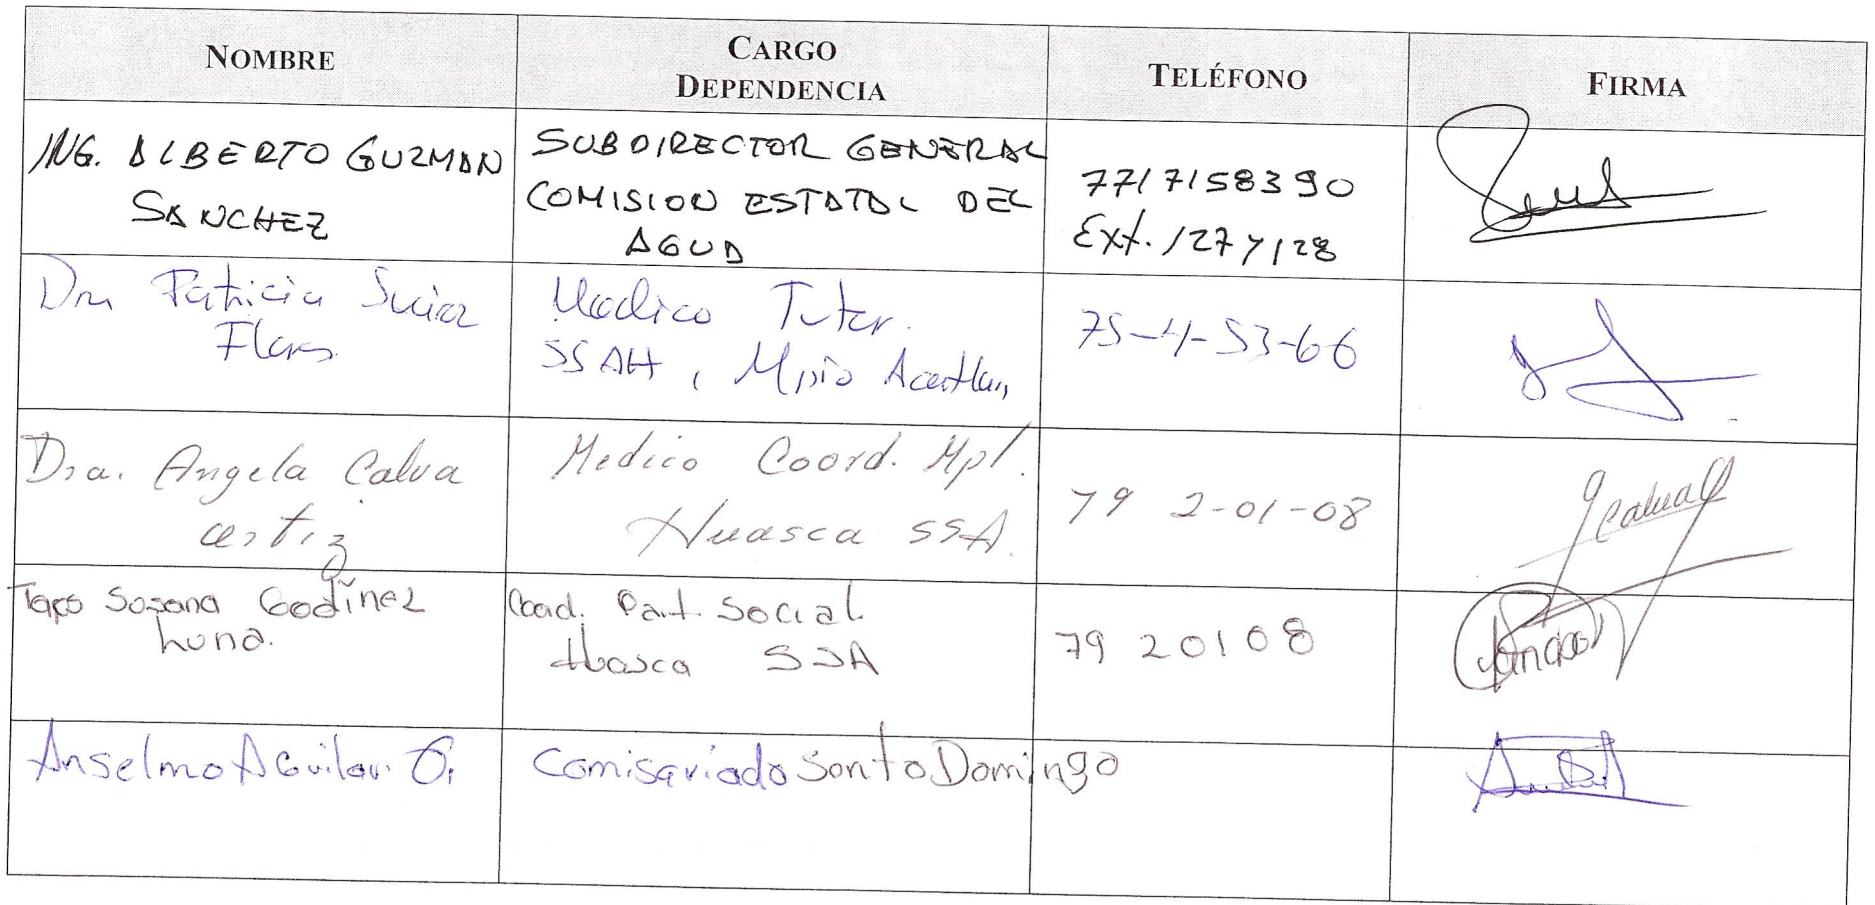 NOMBRE
CARGO
DEPENDENCIA
TELÉFONO
FIRMA
ING. ALBERTO GUZMAN
SANCHEZ
SUBDIRECTOR GENERAL
COMISION ESTATAL DEL
AGUA
7717158390
Ext. 127 y 128
Dra Patricia
Flores
Medico Tutor.
SSAH, Mpio Acatlan,
75-4-53-66
Dra. Angela Calva
Medico Coord. Mpl.
Huasca SSA.
79 2-01-08
Susana Godínez
Luna.
Coord. Part. Social
Huasca SSA
79 20108
Anselmo Aguilar. O.
Comisariado Santo Domingo